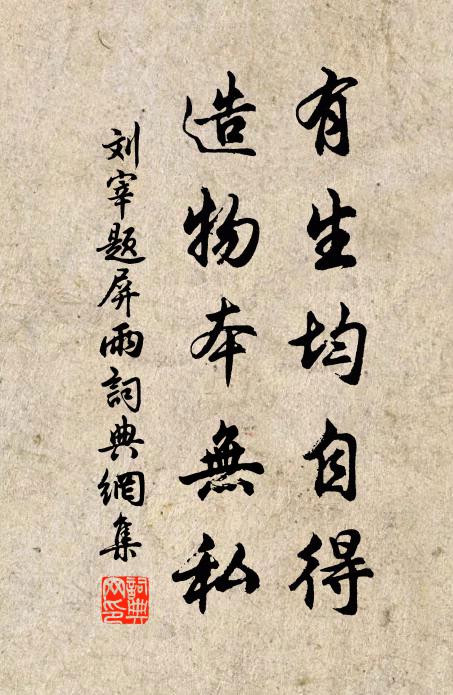 有生均自得
造物本無私
刘宰題屏雨詞典網集
詞典网印